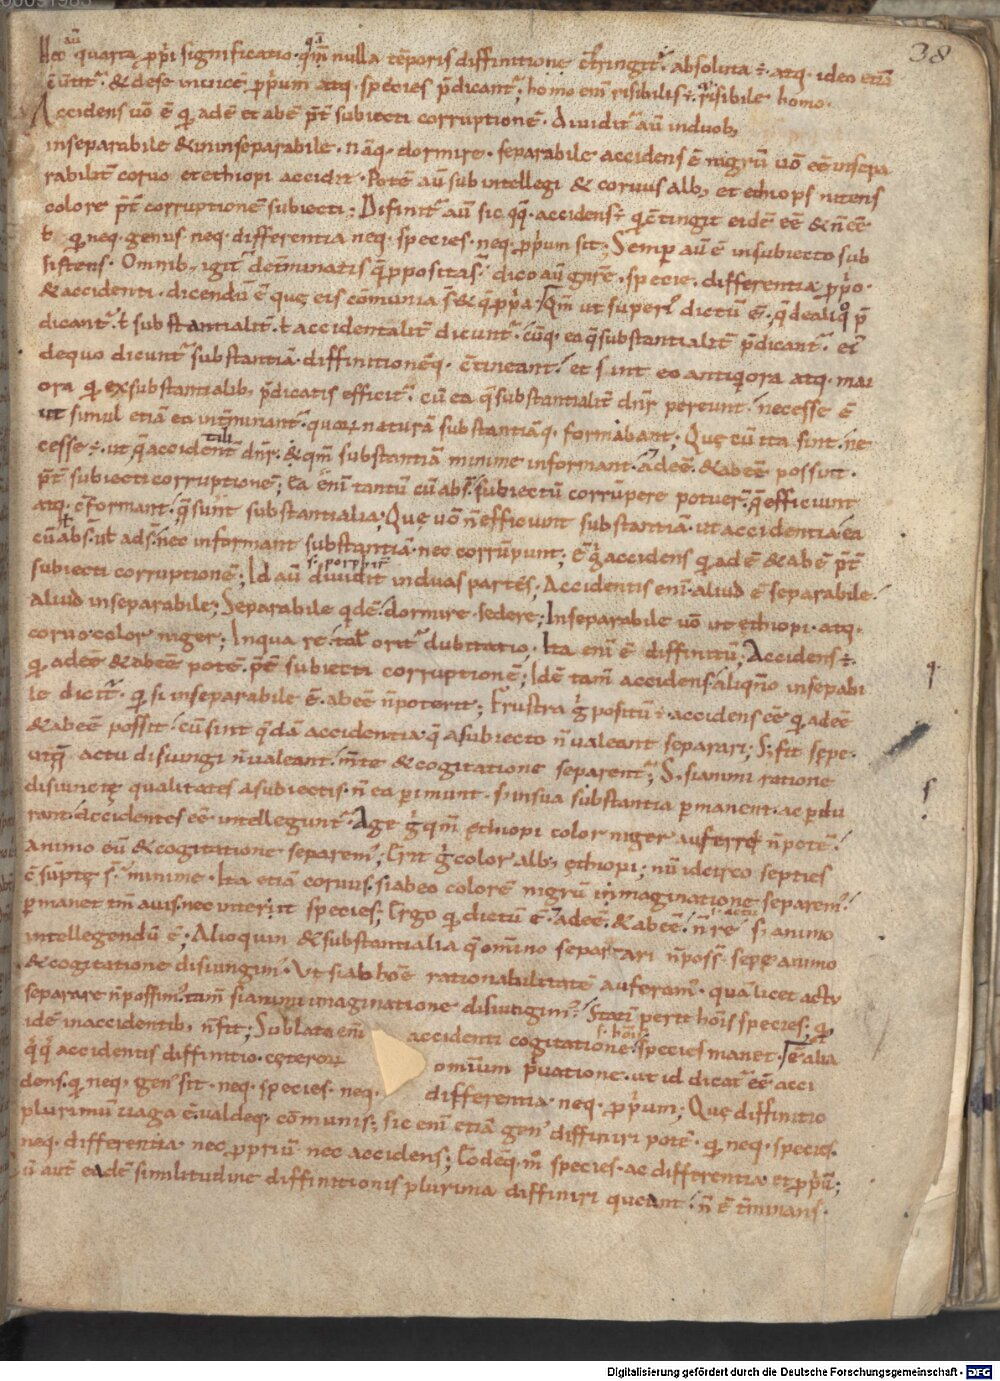 38
Hec aū quarta p̄p̄ri significatio · qm̄ nulla tēporis diffinitione c̄stringit᷑ · absoluta ÷ · atq · ideo etiā
c̄uertit᷑ · & de se inuicē p̄priū atq · species p̄dicant᷑; homo eni risibilis ÷ · risibile homo ·
Accidens uō ē qd adē et abē p̄t subiecti corruptionē · Diuidit᷑ aū in duob;
inseparabile & in inseparabile · Nāq · dormire · separabile accidens ē nigrū uō eē insepa
rabilit̄ coruo et ethiopi accidit · Potē aū subintellegi & coruus alb; et ethiops nitens
colore p̄t corruptionē subiecti; Difinit᷑ aū sic qq · accidens ÷ qd c̄tingit eidē eē & n̄ eē
ł qd neq · genus neq · differentia neq · species · neq · p̄priū sit; Semp aū ē in subiecto sub
sistens · Omnib; igit᷑ det̄minatis q̄ pposita s̄ · dico aū gn̄re · specie · differentia p̄prio ·
& accidenti · dicendū ē quę eis cōmunia s̄ & q̄ p̄pria · Qm̄ ut superi᷑ dictū ē · q̄ de aliq̊ p̄
dicant᷑ · ł substantialit̄ · ł accidentalit̄ dicunt᷑ · cūq · ea q̄ substantialit̄ p̄dicant᷑ · ei᷑
de quo dicunt᷑ substantiā · diffinitionēq · c̄tineant · et sint eo antiqiora atq · mai
ora qd ex substantialib; p̄dicatis efficit᷑ · cū ea q̄ substantialit̄ dn̄r pereunt · necesse ē
ut simul etiā ea int̄minant᷑ · quorū naturā substantiāq · formabant; Quę cū ita sint · ne
cesse ÷ · ut q̄ accidentalit̄ dn̄r · & qm̄ substantiā minime informant · adeē · & abeē possint ·
p̄t subiecti corruptionē; Ea eni tantū cū abs̄ subiectū corrūpere potuer̄ · q̄ efficiunt
atq · c̄formant · q̄ sunt substantialia · Quę uō n̄ efficiunt substantiā · ut accidentia · ea
cū abs̄ · uł ads̄ · nec informant substantiā · nec corrūpunt; ē ḡ accidens qd adē & abē p̄t
subiecti corruptionē; Id aū diuidit · s · porphir᷑ in duas partes · Accidentis eni aliud ē separabile ·
aliud inseparabile; Separabile qdē · dormire · sedere; Inseparabile uō ut ethiopi · atq ·
coruo color niger; In qua re · tał orit᷑ dubitatio · Ita eni ē diffinitū; Accidens ÷
qd adeē & abeē potē · p̄t subiecti corruptionē; Idē tam̄ accidens · aliqn̄o insepabi
le dicit᷑ · qd si inseparabile ē · abeē n̄ poterit; Frustra ḡ positū ÷ · accidens eē qd adeē
& abeē possit · cū sint q̄dā accidentia q̄ a subiecto n̄ ualeant separari; S; fit sępe ·
ut q̄ actu disiungi n̄ ualeant · m̄te & cogitatione separent᷑; S; si animi ratione
disiunctę qualitates a subiectis · n̄ ea p̄imunt · s; in sua substantia p̄manent · ac p̄du
rant · accidentes eē intellegunt᷑ · Age ḡ qm̄ ęthiopi color niger auferre n̄ potē ·
animo eū & cogitatione separem᷑; Erit ḡ color alb; ęthiopi; nū idcirco species
c̄sūptę s̄ · minime · Ita etiā coruus · si ab eo colorē nigrū imaginatione separem᷑ ·
p̄manet tm̄ auis · nec interiit species; Ergo qd dictū ē · adeē · & abeē · n̄ re · i · actu s; animo
intellegendū ē; Alioquin & substantialia q̄ omīno separari n̄ poss̄ · sepe animo
& cogitatione disiungim᷑ · Ut si ab hoīe rationabilitatē auferam᷑ · quā licet actu
separare n̄ possim᷑ · tam̄ si animi imaginatione disiungim᷑ · Statī perit hoīs species · qd
idē in accidentib; n̄ fit; Sublata eni accidenti cogitatione · s · hoīs species manet · Est alia
q̇q̇ accidentis diffinitio · cęterorū omniūm p̄uatione · ut id dicat᷑ eē acci
dens · qd neq · gen᷑ sit · neq · species · neq · differentia · neq · p̄priū; Quę diffinitio
plurimū uaga c̄ ualdeq · cōmunis; sic eni etiā gen᷑ diffiniri potē · qd neq · species ·
neq · differentia · nec p̄priū · nec accidens; Eodēq · m̊ species · ac differentia et p̄priū;
ū aut̄ eadē similitudine diffinitionis plurima diffiniri queant · n̄ ē t̄minans ·
q ·
s ·
Digitalisierung gefördert durch die Deutsche Forschungsgemeinschaft · DFG